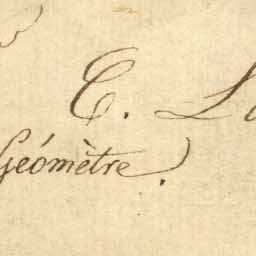 C. L
Géomètre).